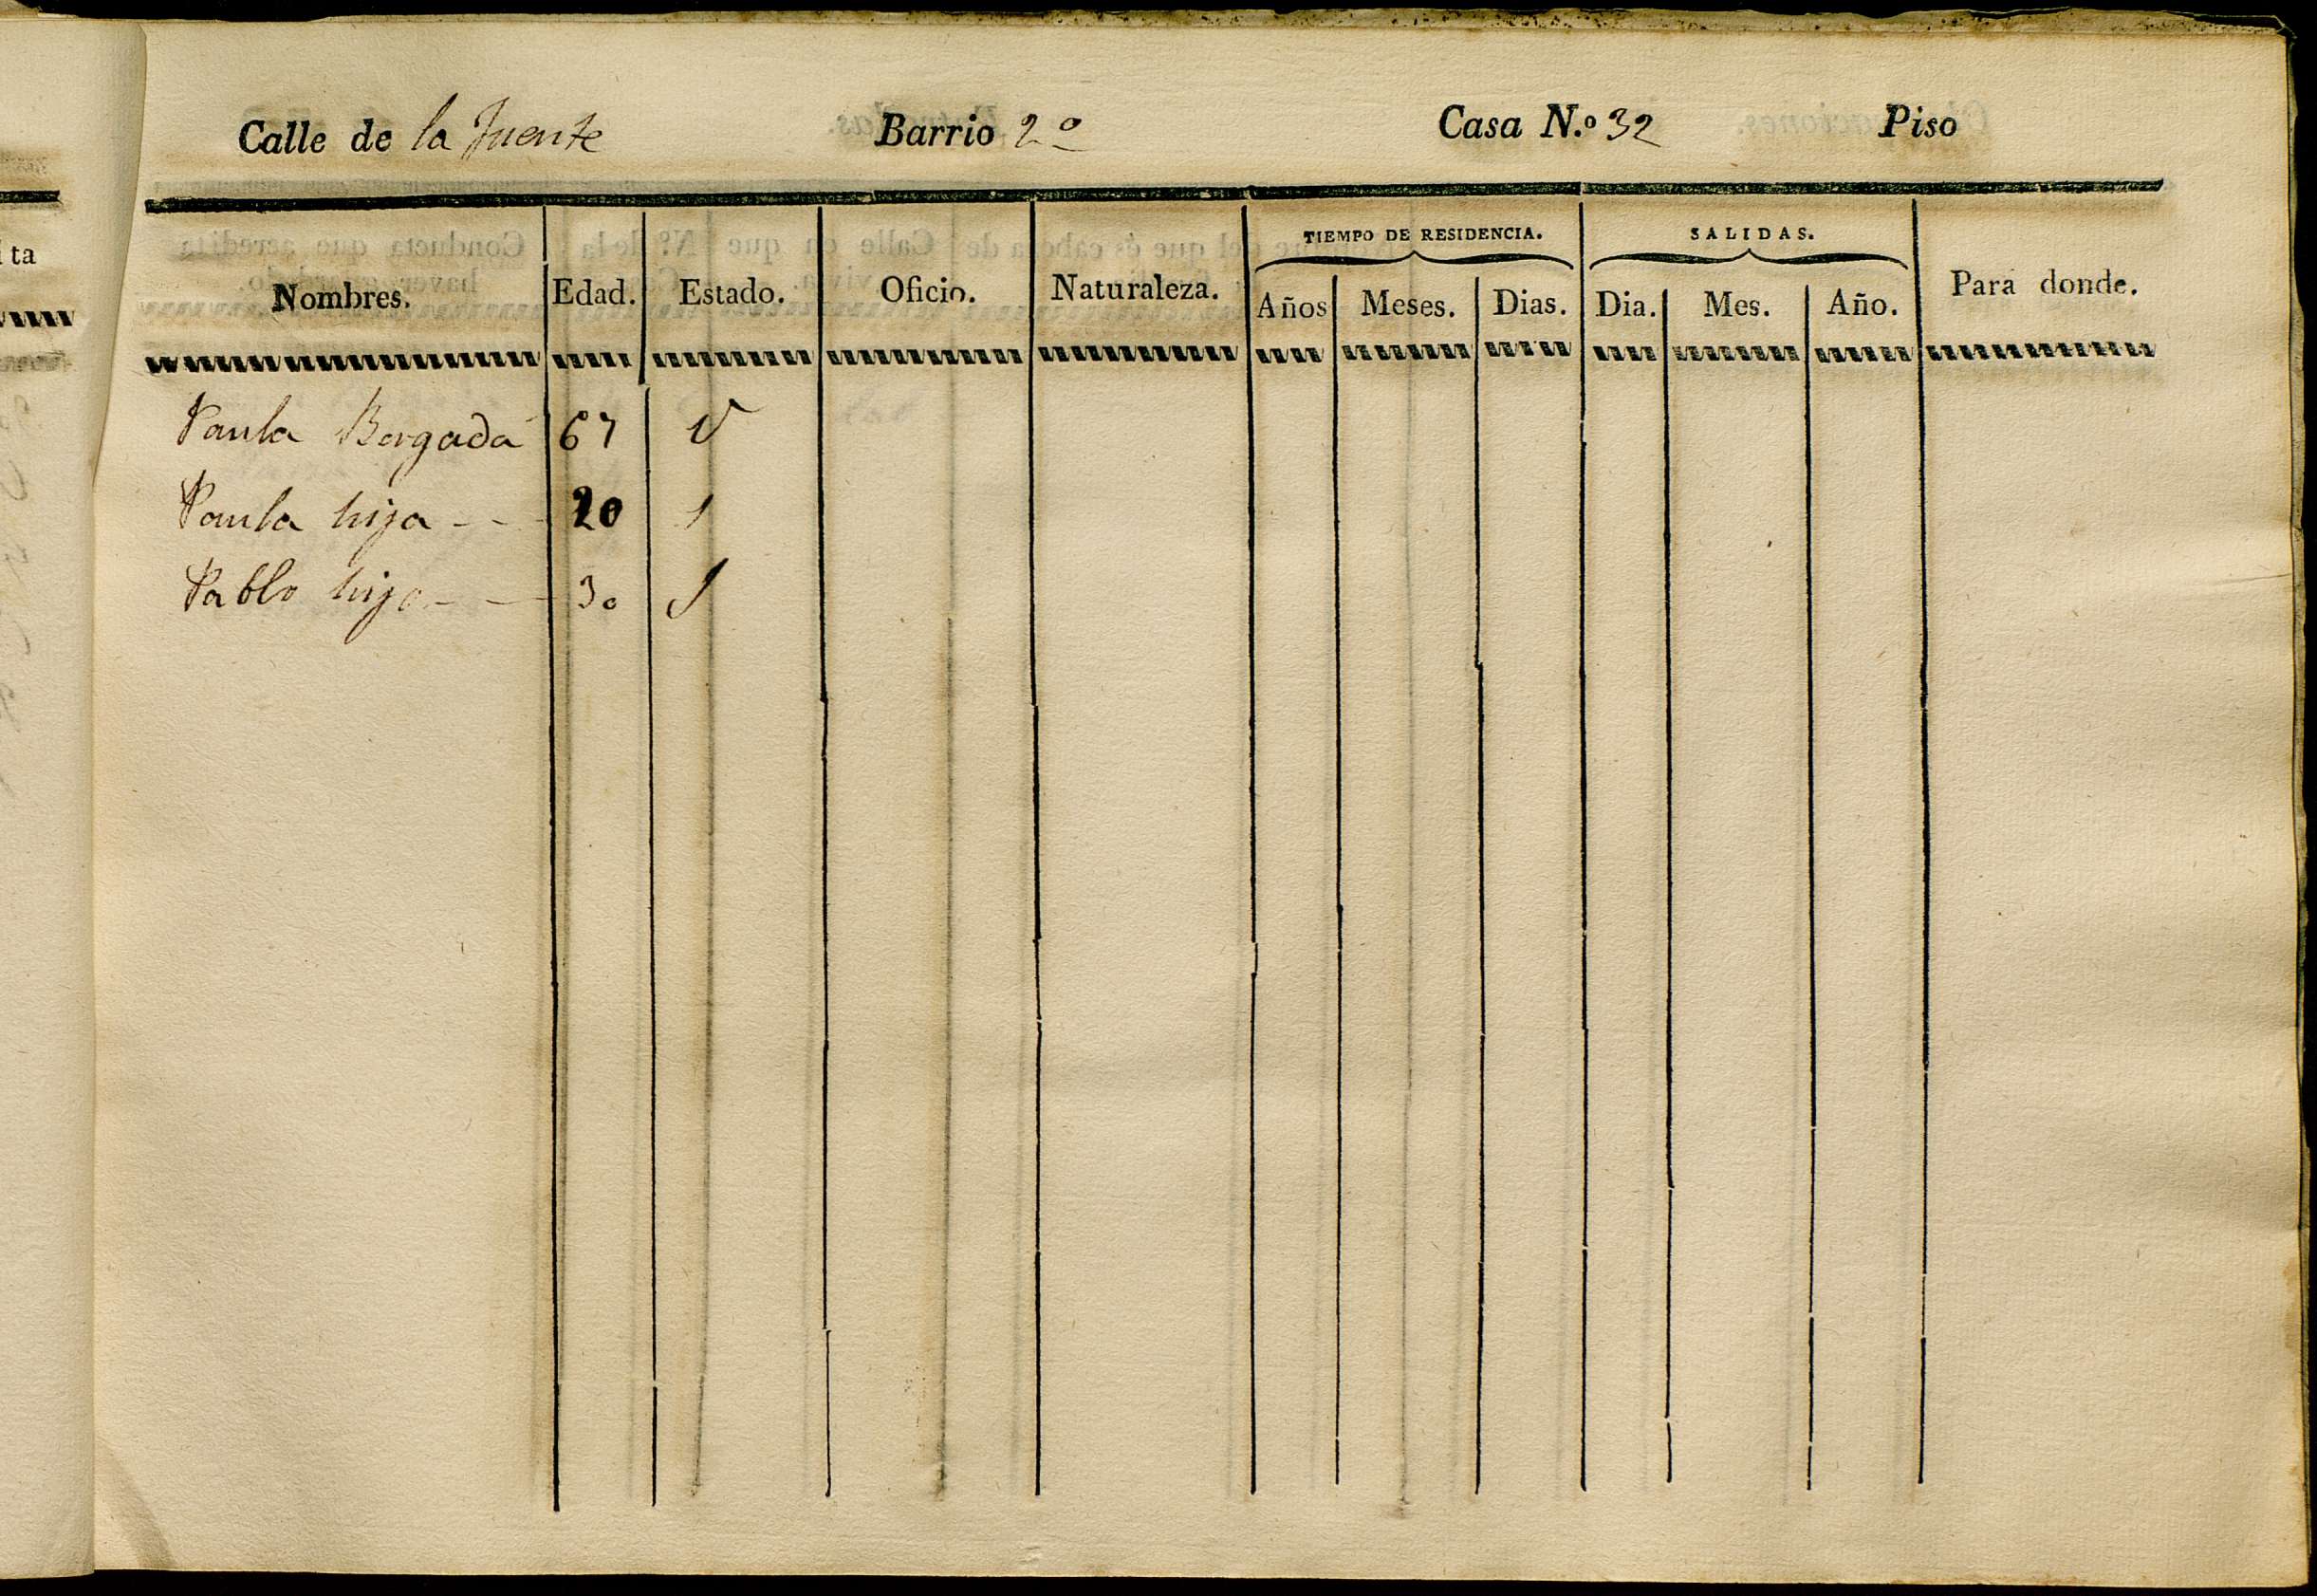 Calle de la Fuente Barrio 2º Casa N.º 32 Piso
TIEMPO DE RESIDENCIA. SALIDAS.
Nombres. Edad. Estado. Oficio. Naturaleza. Años Meses. Dias. Dia. Mes. Año. Para donde.
Paula Bergada 67 V
Paula hija - - - 20 S
Pablo hijo - - 30 S
ta